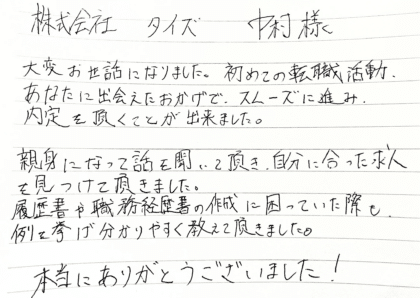 株式会社 タイズ 中村様
大変お世話になりました。初めての転職活動、
あなたに出会えたおかげで、スムーズに進み、
内定を頂くことが出来ました。
親身になって話を聞いて頂き、自分に合った求人
を見つけて頂きました。
履歴書や職務経歴書の作成に困っていた際も、
例を挙げ分かりやすく教えて頂きました。
本当にありがとうございました!